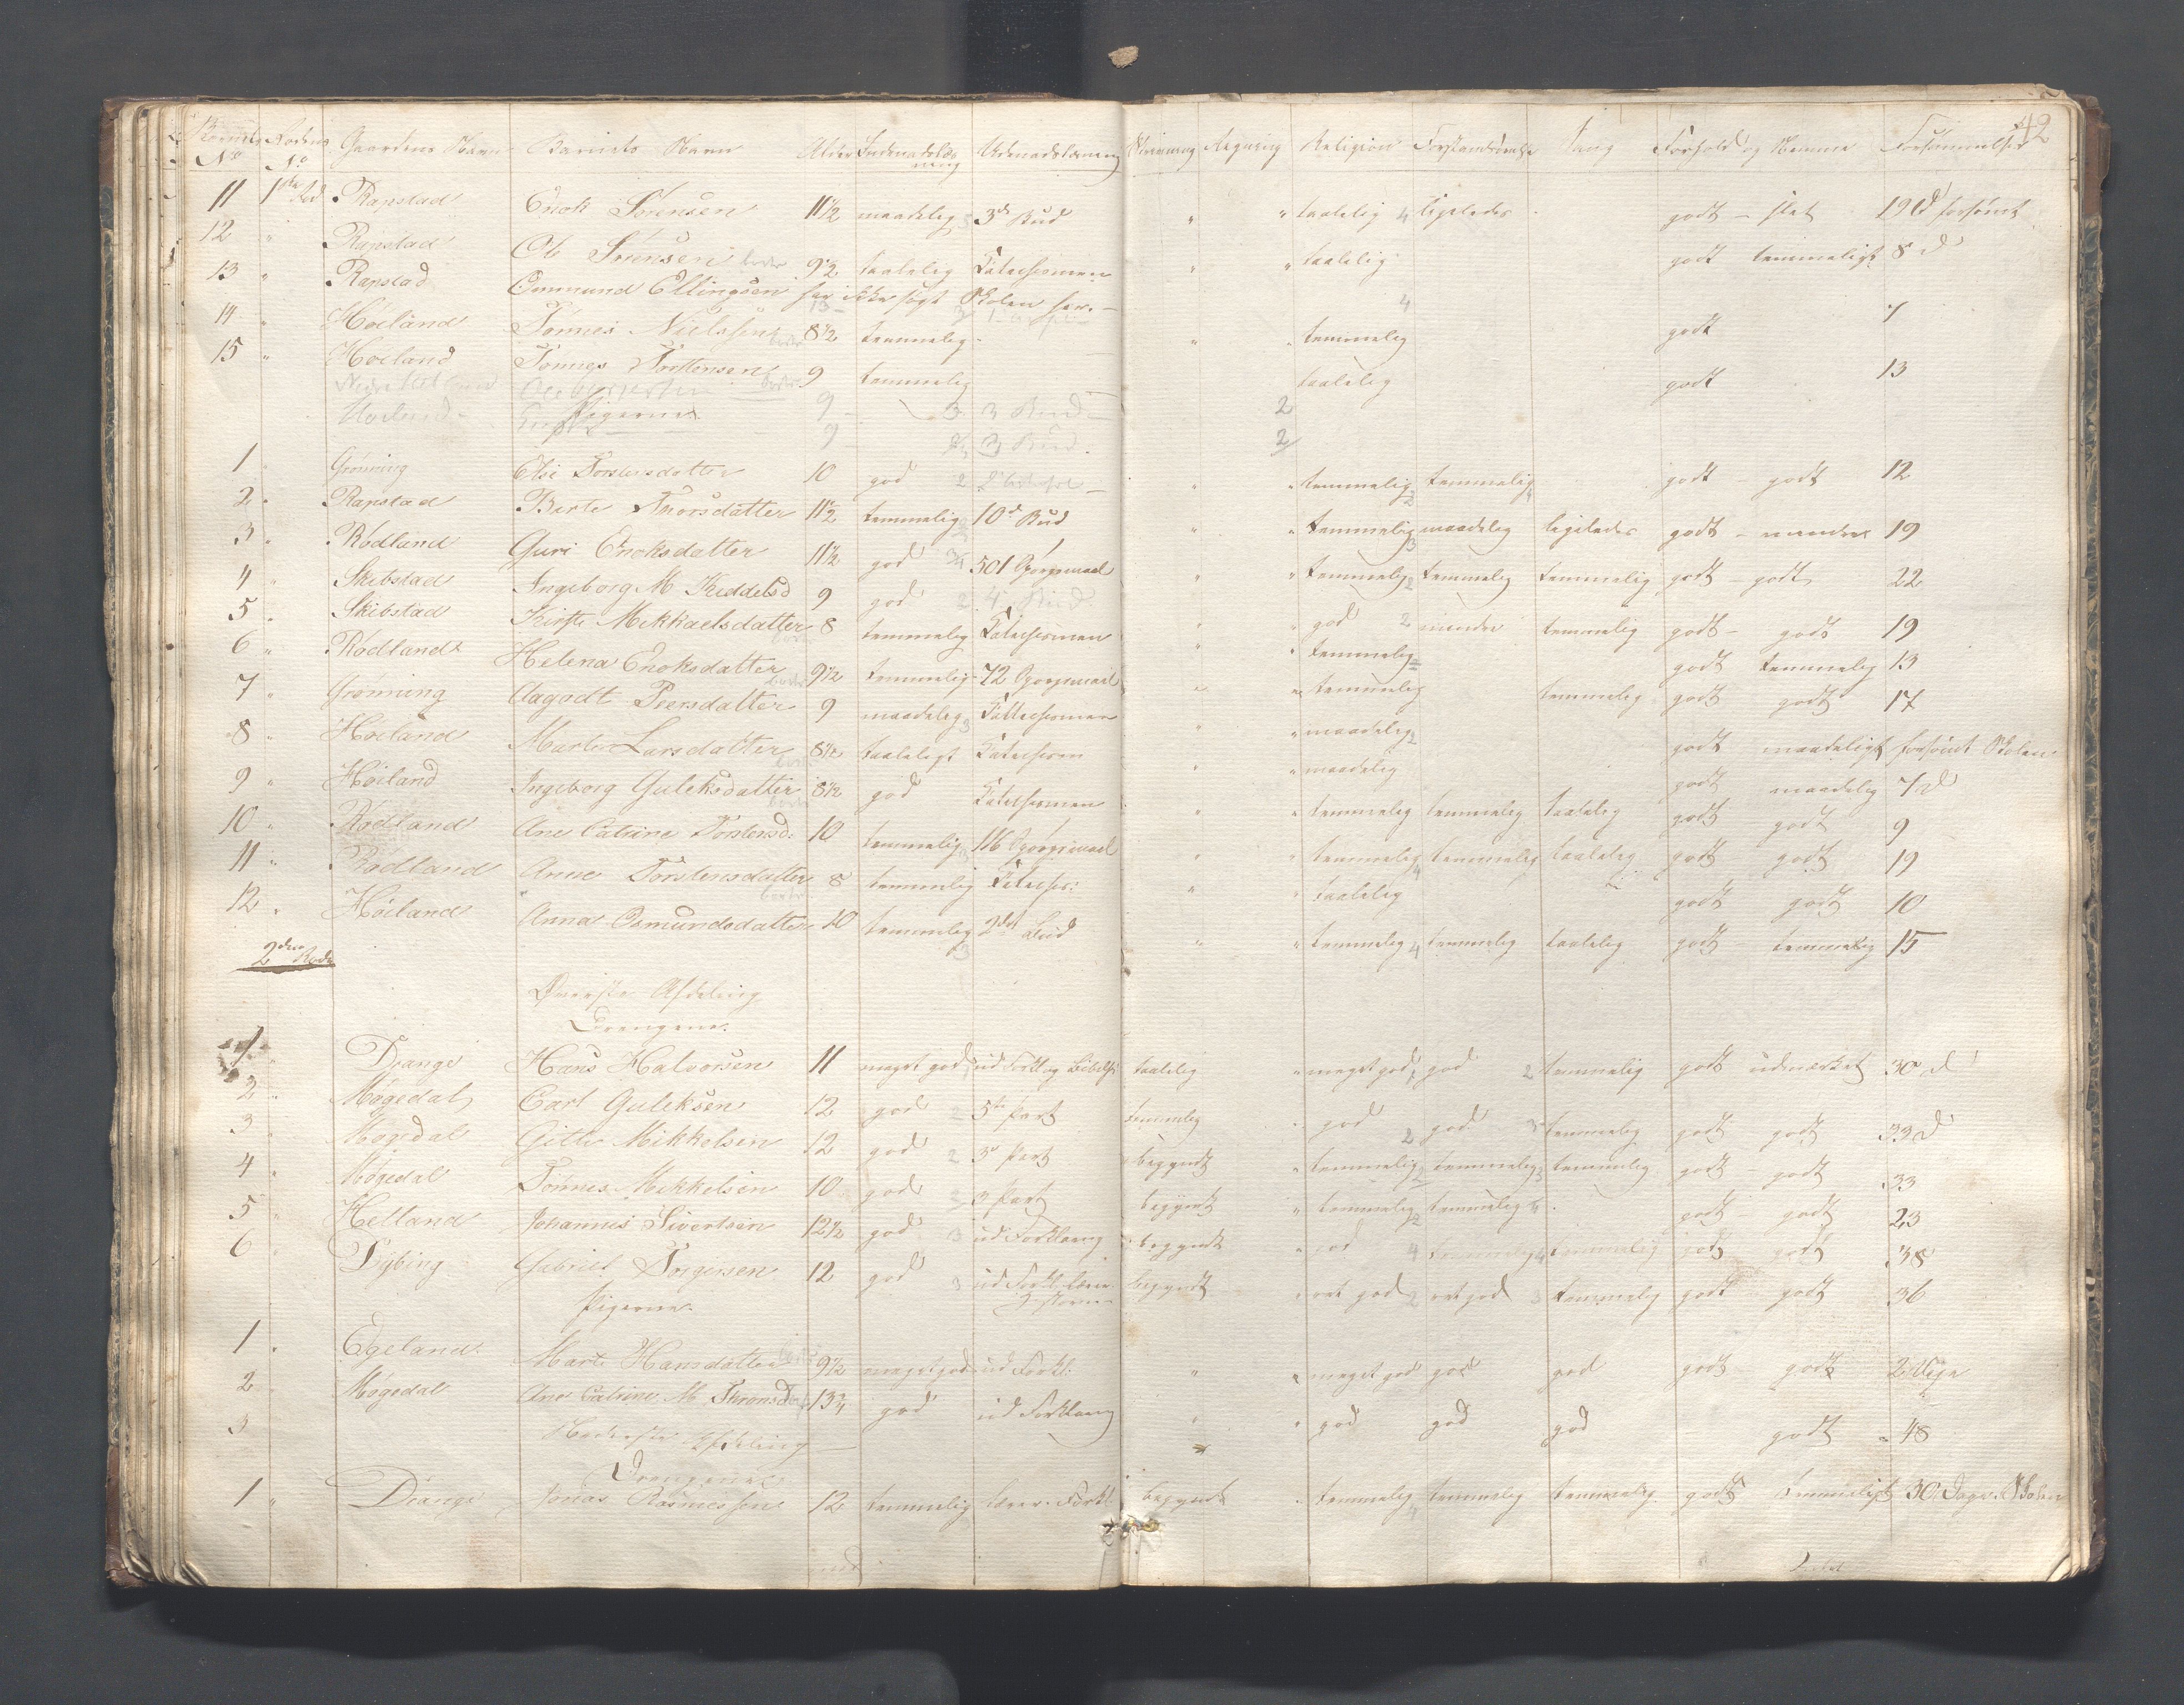 42
Barnets No Rodens No Gaardens Navn Barnets Navn Alder Indenadslæsning Udenadslæsning Skrivning Regning Religion Forstandsøvelse Sang Forhold og Nemme Forsømmelser
11 1ste Rod Rapstad Enok Sørensen 11½ maadelig 3 3de Bud " " taalelig 4 ligeledes godt - slet 19 d forsømt
12 " Rapstad Ole Sørensen borte 9½ taalelig Katechismen " " taalelig godt temmeligt 8 d
13 " Rapstad Ommund Ellingsen har ikke søgt Skolen her.
14 " Høiland Tønnes Nielssen borte 8½ temmelig " " temmelig 4 godt 7
15 " Høiland Tønnes Torstensen borte 9 temmelig taalelig godt 13
9 3 3 Bud 2
Høiland 9 3 Bud 2
Pigerne
1 " Grønning Else Torstensdatter 10 god 2 " " temmelig 2 temmelig godt godt 12
2 " Rapstad Berte Thorsdatter 11½ temmelig 10de Bud " " temmelig 3 maadelig ligeledes godt - mindre 19
3 " Rødland Guri Enoksdatter 11½ god 501 Spørgsmaal " " temmelig 2 temmelig temmelig godt - godt 22
4 " Skibstad Ingeborg M. Keddelsd 9 god 2 4 Bud " " god 2 mindre temmelig godt - godt 19
5 " Skibstad Kirste Mikkaelsdatter borte 8 temmelig Katechismen " " temmelig godt temmelig 13
6 " Rødland Helena Enoksdatter borte 9½ temmelig 72 Spørgsmaal " " temmelig temmelig godt godt 17
7 " Grønning Aagodt Peersdatter 9 maadelig 3 Katechismen " " maadelig 2 godt maadeligt forsømt Skolen
8 " Høiland Marte Larsdatter borte 8½ taaleligt Katechism " " maadelig godt maadelig 7 d
9 " Høiland Ingeborg Guleksdatter borte 8½ god Katechismen " " temmelig temmelig taalelig godt godt 9
10 " Rødland Ane Catrine Torstensd: 10 temmelig 116 Spørgsmaal " " temmelig 4 temmelig taalelig godt godt 19
11 " Rødland Anne Torstensdatter borte 8 temmelig Katechis: " " taalelig godt godt 10
12 " Høiland Anna Osmundsdatter 10 temmelig 3 2det Bud " " temmelig 4 temmelig taalelig godt temmelig 15
2den Rode
Øverste Afdeling
Drengene.
1 " Drange Hans Halvorsen 11 meget god ud Forkl og Bibelh: taalelig " meget god 1 god 2 temmelig godt udmærket 30 d
2 " Møgedal Carl Guleksen 12 god 2 5te Part temmelig " god 2 god 3 temmelig godt godt 33 d
3 " Møgedal Gitle Mikkelsen 12 god 2 3de Part begyndt " temmelig 2 temmelig 3 temmelig godt - godt 33
4 " Møgedal Tønnes Mikkelsen 10 god 2 3 Part begyndt " temmelig 2 temmelig godt - godt 23
5 " Helland Johannes Sivertsen 12½ god 3 ud Forklaring begyndt " god 4 temmelig 4 temmelig godt godt 38
6 " Dybing Gabriel Torgersen 12 god 3 ud Forkl: begyndt " ret god 2 ret god 3 temmelig godt godt 36
Pigerne.
1 " Egeland Marte Hansdatter borte 9½ meget god ud Forkl: " " meget god god god godt godt 2 Uger
2 " Møgedal Ane Catrine M. Thronsd 13¾ god ud Forklaring " " god god god godt 48
3
Nederste Afdeling
Drengene
1 " Drange Jonas Rasmussen 12 temmelig lærer Forkl: begyndt " temmelig 4 temmelig temmelig godt temmeligt 30 Dage Skolen